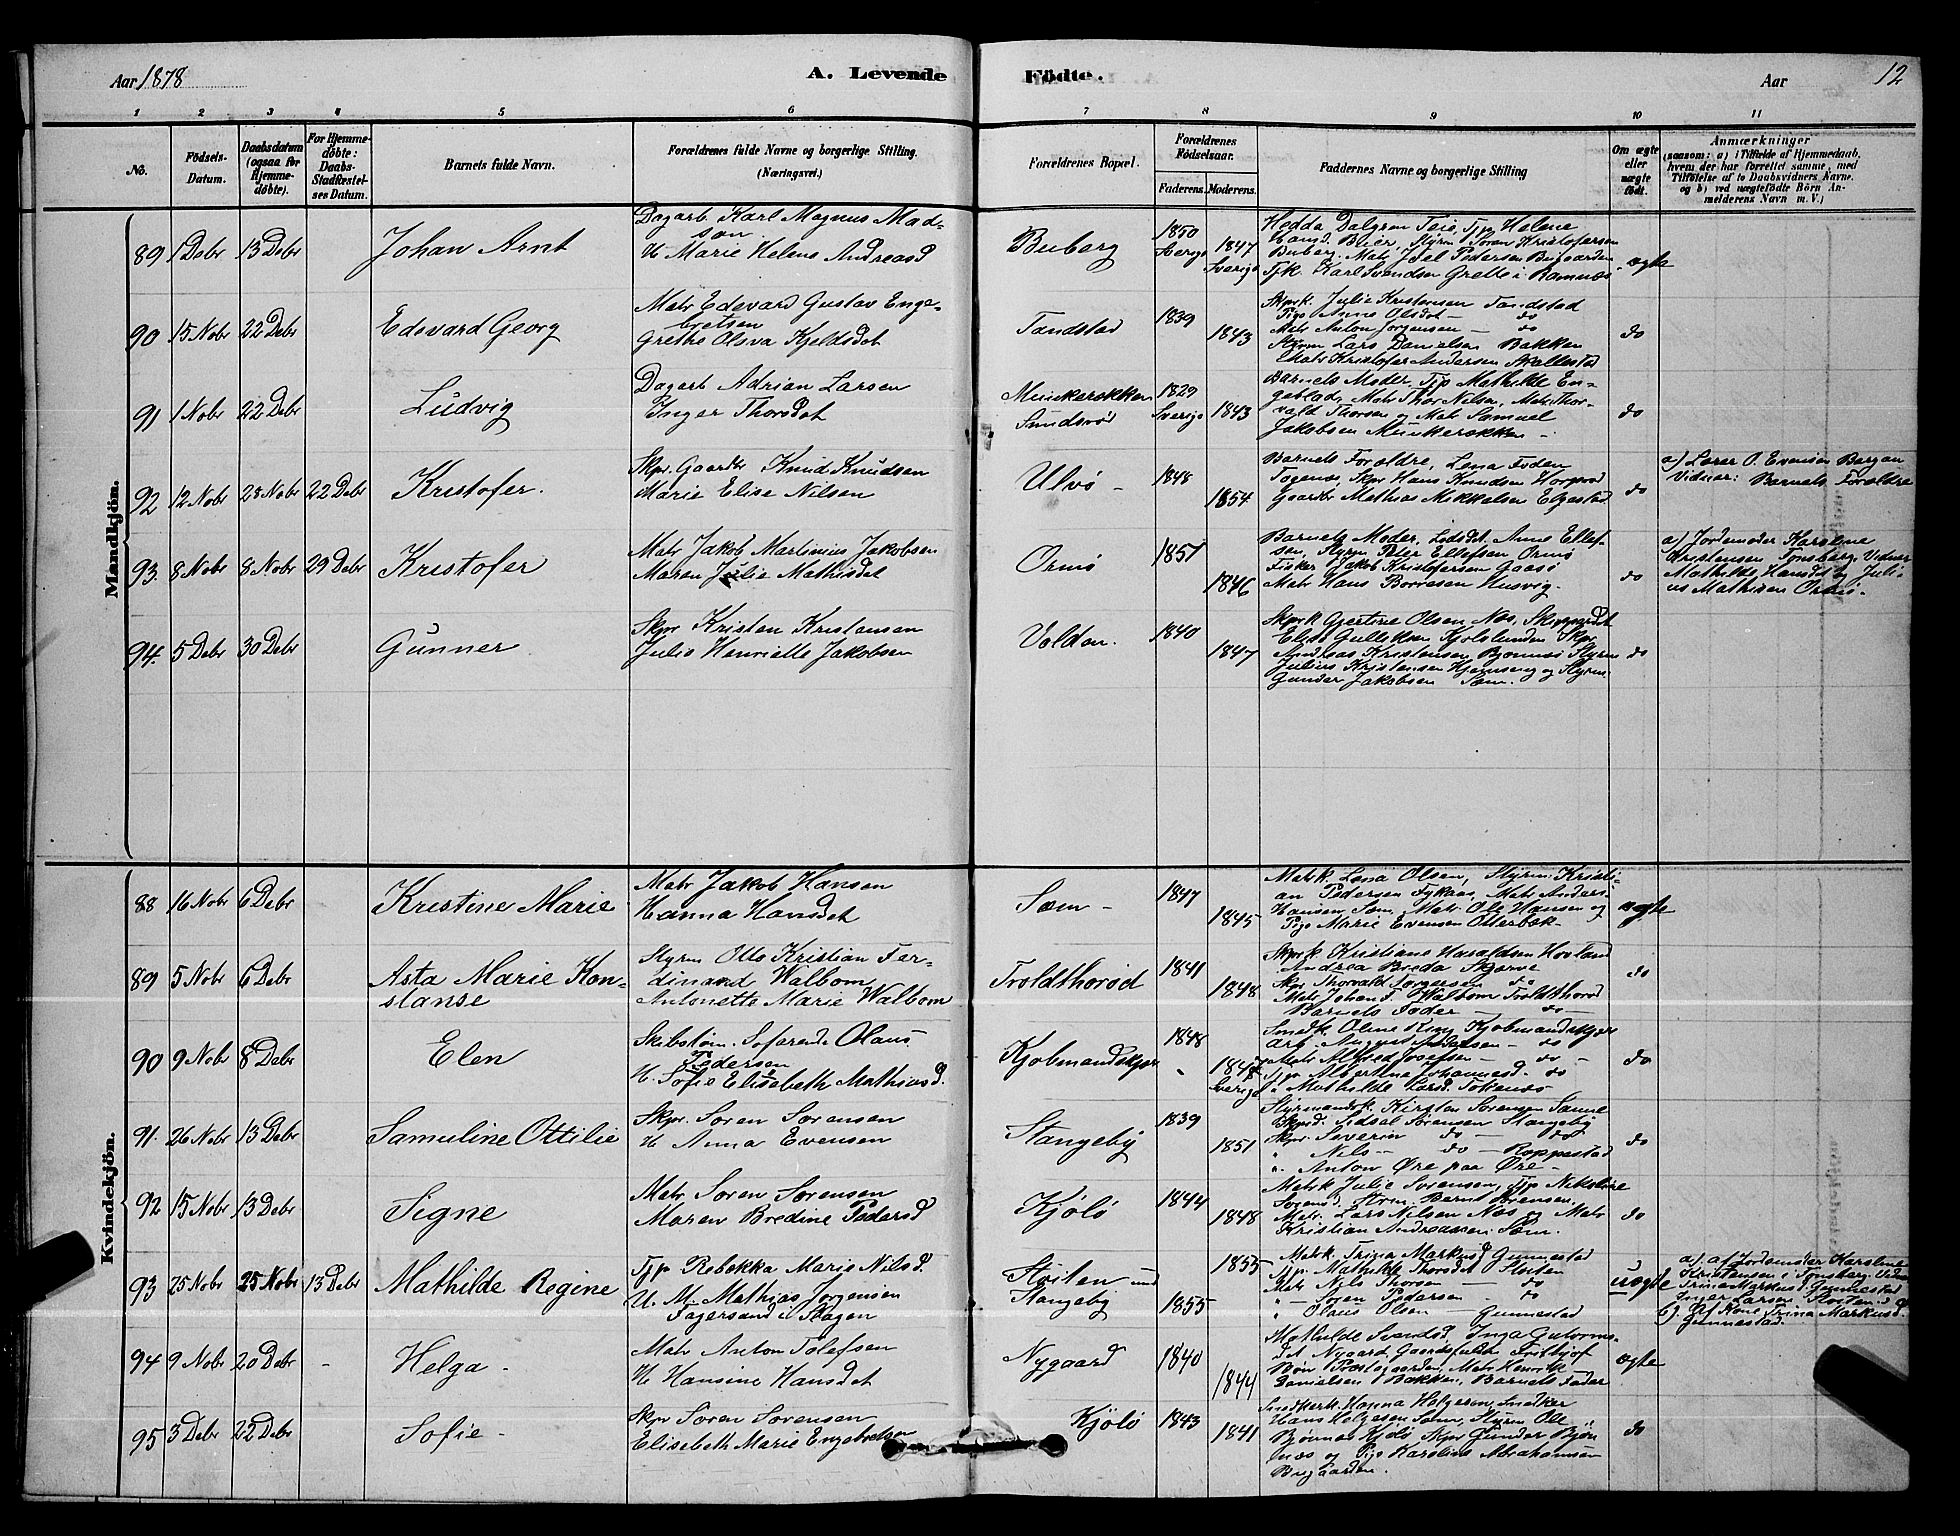 Aar 1878
A. Levende
Födte.
Aar
12
1 2 3 4 5 6 7 8 9 10 11
No.
Födsels-
Datum.
Daabsdatum
(ogsaa for
Hjemme-
döbte).
For Hjemme-
döbte:
Daabs-
Stadfæstel-
ses Datum.
Barnets fulde Navn.
Forældrenes fulde Navne og borgerlige Stilling.
(Næringsvei.)
Forældrenes Bopæl.
Forældrenes
Födselsaar.
Faderens. Moderens.
Faddernes Navne og borgerlige Stilling
Om ægte
eller
uægte
født.
Anmærkninger
(saasom: a) i Tilfælde af Hjemmedaab,
hvem der har forrettet samme, med
Tilföielse af to Daabsvidners Navne.
og b) ved uægtefödte Börn An-
melderens Navn m. V.)
Mandkjön.
89 1 Debr 13 Debr
Johan Arnt
Dagarb Karl Magnus Mad-
son
H. Marie Helene Andreasd
Buberg
1850
Sverige
1847
Sverige
Hedda Dalgren Teie, Tjp Helene
Hansd. Blier, Styrm Soren Kristofersen
Buberg. Matr Joel Pedersen Bugaarden
Tjk. Karl Svendsen Grette i Ramnæs
ægte
90 15 Nobr 22 Debr
Edevard Georg
Matr Edevard Gustav Enge-
bretsen
Grethe Olava Kjeldsdet
Tandstad
1839
1843
Skprk. Julie Kristensen Tandstad
Pige Anne Olsdet - do
Matr Anton Jorgensen - do
Styrm Lars Danielsen Bakken
Matr Kristofer Andersen Skallestad
do
91 1 Nobr 22 Debr
Ludvig
Dagarb Adrian Larsen
Inger Thorsdet
Munkerekken
Sundsrød
1829
Sverige
1843
Barnets Moder, Tjp Mathilde En-
geblad, Matr Thor Nilsen, Matr Thor-
vald Thorsen og Matr Samuel
Jakobsen Munkerekken -
do
92 12 Nobr 28 Nobr 22 Debr
Kristofer.
Skpr. Gaardbr Knud Knudsen
Marie Elise Nilsen
Ulvø -
1848
1854
Barnets Forældre, Lena Foden
Togenæs, Skpr Hans Knudsen
Gaardbr Mathias Mikkelsen Elgestad
do
a) Lærer O. Evensen Bergan
Vidner: Barnets Forældre
93. 8 Nobr 8 Nobr 29 Debr
Kristofer
Matr Jakob Martinius Jakobsen
Maren Julie Mathisdet
Ormø
1851
1846
Barnets Moder, Anne Ellef-
sen, Styrm Peter Ellefsen Ormø
Fisker Jakob Kristofersen Gaasø
Matr Hans Borresen Husvig.
do
a) Jordemoder Karoline
Kristensen Tønsberg. Vidner
Mathilde Hansdet og Juli-
us Mathisen Ormø.
94. 5 Debr 30 Debr
Gunner
Skpr Kristen Kristensen
Julie Henriette Jakobsen
Volden.
1840
1847
Skprk Gjertine Olsen Næs,
Elise Gulliksen Skpr
Andreas Kristensen, Styrm
Julius Kristensen Hjemseng og Styrm.
Gunder Jakobsen Sæm.
do
Kvindekjön.
88 16 Nobr 6 Debr
Kristine Marie
Matr Jakob Hansen
Hanna Hansdet
Sæm -
1847
1845
Matrk. Lena Olsen, Styrm Kristi-
an Pedersen Fykaas, Matr Anders
Hansen Sæm, Matr. Ole Hansen og
Pige Marie Evensen Otterbæk -
ægte
89 5 Nobr 6 Debr
Asta Marie Kon-
stanse
Styrm Otto Kristian Fer-
dinand Walbom
Antonette Marie Walbom
Troldthorød
1841
1848
Skprk Kristiane Haraldsen Hovland
Andrea Breda Skjerve
Skpr Thorvald Torgersen do
Matr Johan F. Walbom Troldthorød
Barnets Fader - do -
do
90 9 Nobr 8 Debr
Elen
Skibstøm. Sofarende Olaus
Pedersen
H. Sofie Elisabeth Mathiasd.
Kjobmandskjær
1848
Sverige
Smedk. Oline King Kjobmandskjær
Arb. August Andersen - do
Matr Alfred Josefsen - do -
Tjp Albertine Johannesd. do
" Mathilde Larsd. Tokenæs
do
91. 26 Nobr 13 Debr
Samuline Ottilie
Skpr. Soren Sorensen
H. Anna Evensen
Stangeby
1839
1851
Styrmandsk. Kirsten Sorensen
Skprd. Sidsel Sorensen Stangeby
Skpr. Severin do - do
" Nils - do - Roppestad
" Anton Øre paa Øre -
do
92 15 Nobr 13 Debr
Signe
Matr Soren Sorensen
Maren Bredine Pedersd
Kjølø
1844
1848
Matrk Julie Sorensen, Tjp Nikoline
Sorensd. Styrm. Bernt Sorensen,
Matr. Lars Nilsen Næs og Matr
Kristian Andreassen Sæm.
do
93 25 Nobr 25 Nobr 13 Debr
Mathilde Regine
Tjp. Rebekka Marie Nilsd.
U. M. Mathias Jorgensen
Fagersand i Slagen
Sloiten und
Stangeby
1855
1855
Matrk. Trina Markusd Gunnestad
Tjp. Mathilde Thorsdet Sloiten
Matr Nils Thorsen - do
" - Soren Pedersen - do
" Olaus Olsen - Gunnestad
uægte
a) af Jordemoder Karoline
Kristensen i Tønsberg. Vidner
Trina Markusd Gunnestad
Inger Larsen Sloiten
b) Af Kone Trina Markusd.
Gunnestad.
94 9 Nobr 20 Debr -
Helga -
Matr Anton Tolefsen
H. Hansine Hansdet
Nygaard
1840
1844
Mathilde Svendsd, Inga Gutorms-
det Nygaard, Gaardsfuldm Frithjof
Bøn Præstegaarden, Matr Henrik
Danielsen Bakken, Barnets Fader
ægte
95 3 Debr 22 Debr
Sofie -
Skpr Soren Sorensen
Elisabeth Marie Engebretsen
Kjölö
1843
1841
Smedkerk. Hanna Holgersen, Smedker
Hans Holgersen Sæm, Styrm Ole
Bjönnæs Kjölö, Skpr Gunder Bjön-
næs og Pige Karoline Abrahamsen
Bugaarden.
do